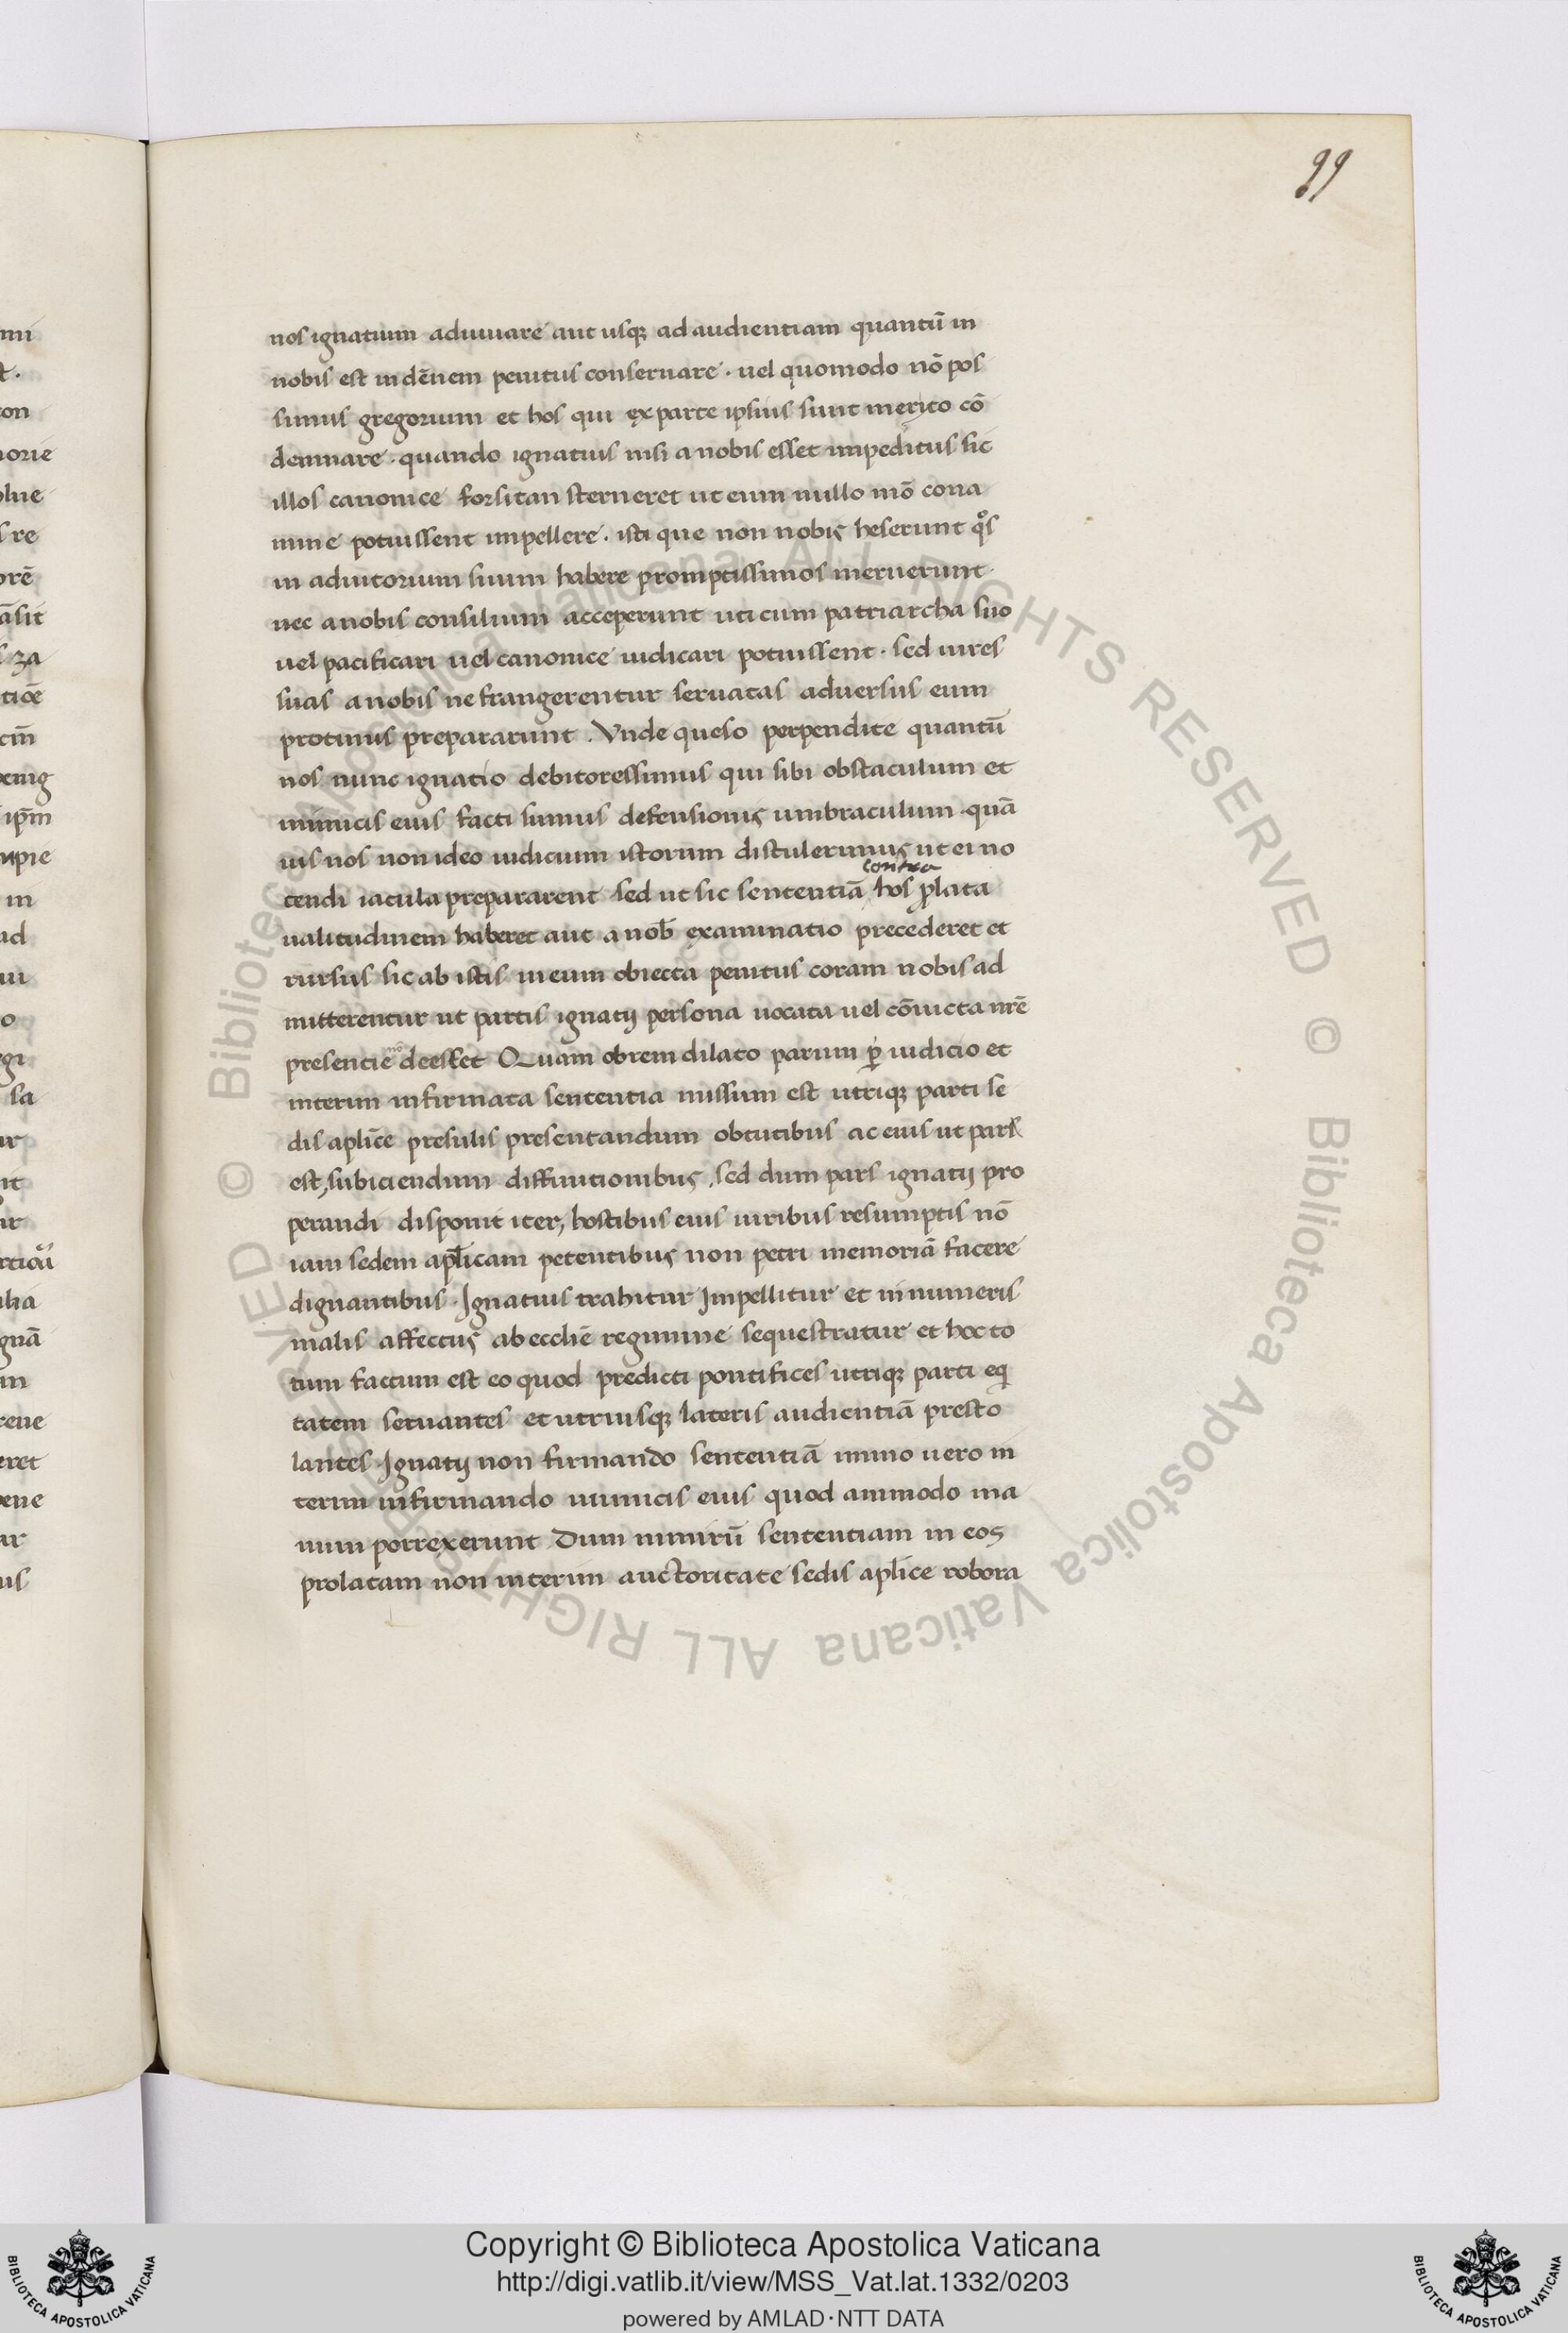 99
nos ignatium adiuuare aut usqꝫ ad audientiam quantū in
nobis est indēnem penitus conseruare · uel quomodo nō pos
sumus gregorium et hos qui ex parte ipsius sunt merito cō
demnare · quando ignatius nisi a nobis esset impeditus sic
illos canonice forsitan sterneret ut eum nullo mō cona
mine potuissent impellere · isti que non nobis heserunt qͦs
in adiutorium suum habere promptissimos meruerunt ·
nec a nobis consilium acceperunt uti cum patriarcha suo
uel pacificari uel canonice iudicari potuissent · sed uires
suas a nobis ne frangerentur seruatas aduersus eum
protinus prepararunt . Vnde queso perpendite quantū
nos nunc ignatio debitores simus qui sibi obstaculum et
inimicis eius facti sumus defensionis umbraculum · quā
uis nos non ideo iudicium istorum distulerimus ut ei no
contra
cendi iacula prepararent sed ut sic sententiā , hos ꝓlata
ualitudinem haberet aut a nob̄ examinatio precederet et
rursus sic ab istis in eum obiecta penitus coram nobis ad
mitterentur ut partis ignatij persona uocata uel cōuicta nr̄e
presencie nō deesset Quam obrem dilato parum ꝑ iudicio et
interim infirmata sententia missum est utriqꝫ parti se
dis apl̄ice presulis presentandum obtutibus ac eius ut pars
est, subiciendum diffinitionibus, sed dum pars ignatij pro
perandi disponit iter, hostibus eius uiribus resumptis nō
iam sedem apl̄icam petentibus non petri memoriā facere
dignantibus · Ignatius trahitur Impellitur et innumeris
malis affectus ab eccliē regimine sequestratur et hoc to
tum factum est eo quod predicti pontifices utriqꝫ parti eq
tatem seruantes et utriusqꝫ lateris audientiā presto
lantes · Ignatij non firmando sententiā immo uero in
terim infirmando inimicis eius quod ammodo ma
num porrexerunt Dum nimirū sententiam in eos
prolatam non interim auctoritate sedis apl̄ice robora
© Biblioteca Apostolica Vaticana ALL RIGHTS RESERVED
© Biblioteca Apostolica Vaticana ALL RIGHTS RESERVED
Copyright © Biblioteca Apostolica Vaticana
http://digi.vatlib.it/view/MSS_Vat.lat.1332/0203
powered by AMLAD·NTT DATA
BIBLIOTECA APOSTOLICA VATICANA
BIBLIOTECA APOSTOLICA VATICANA